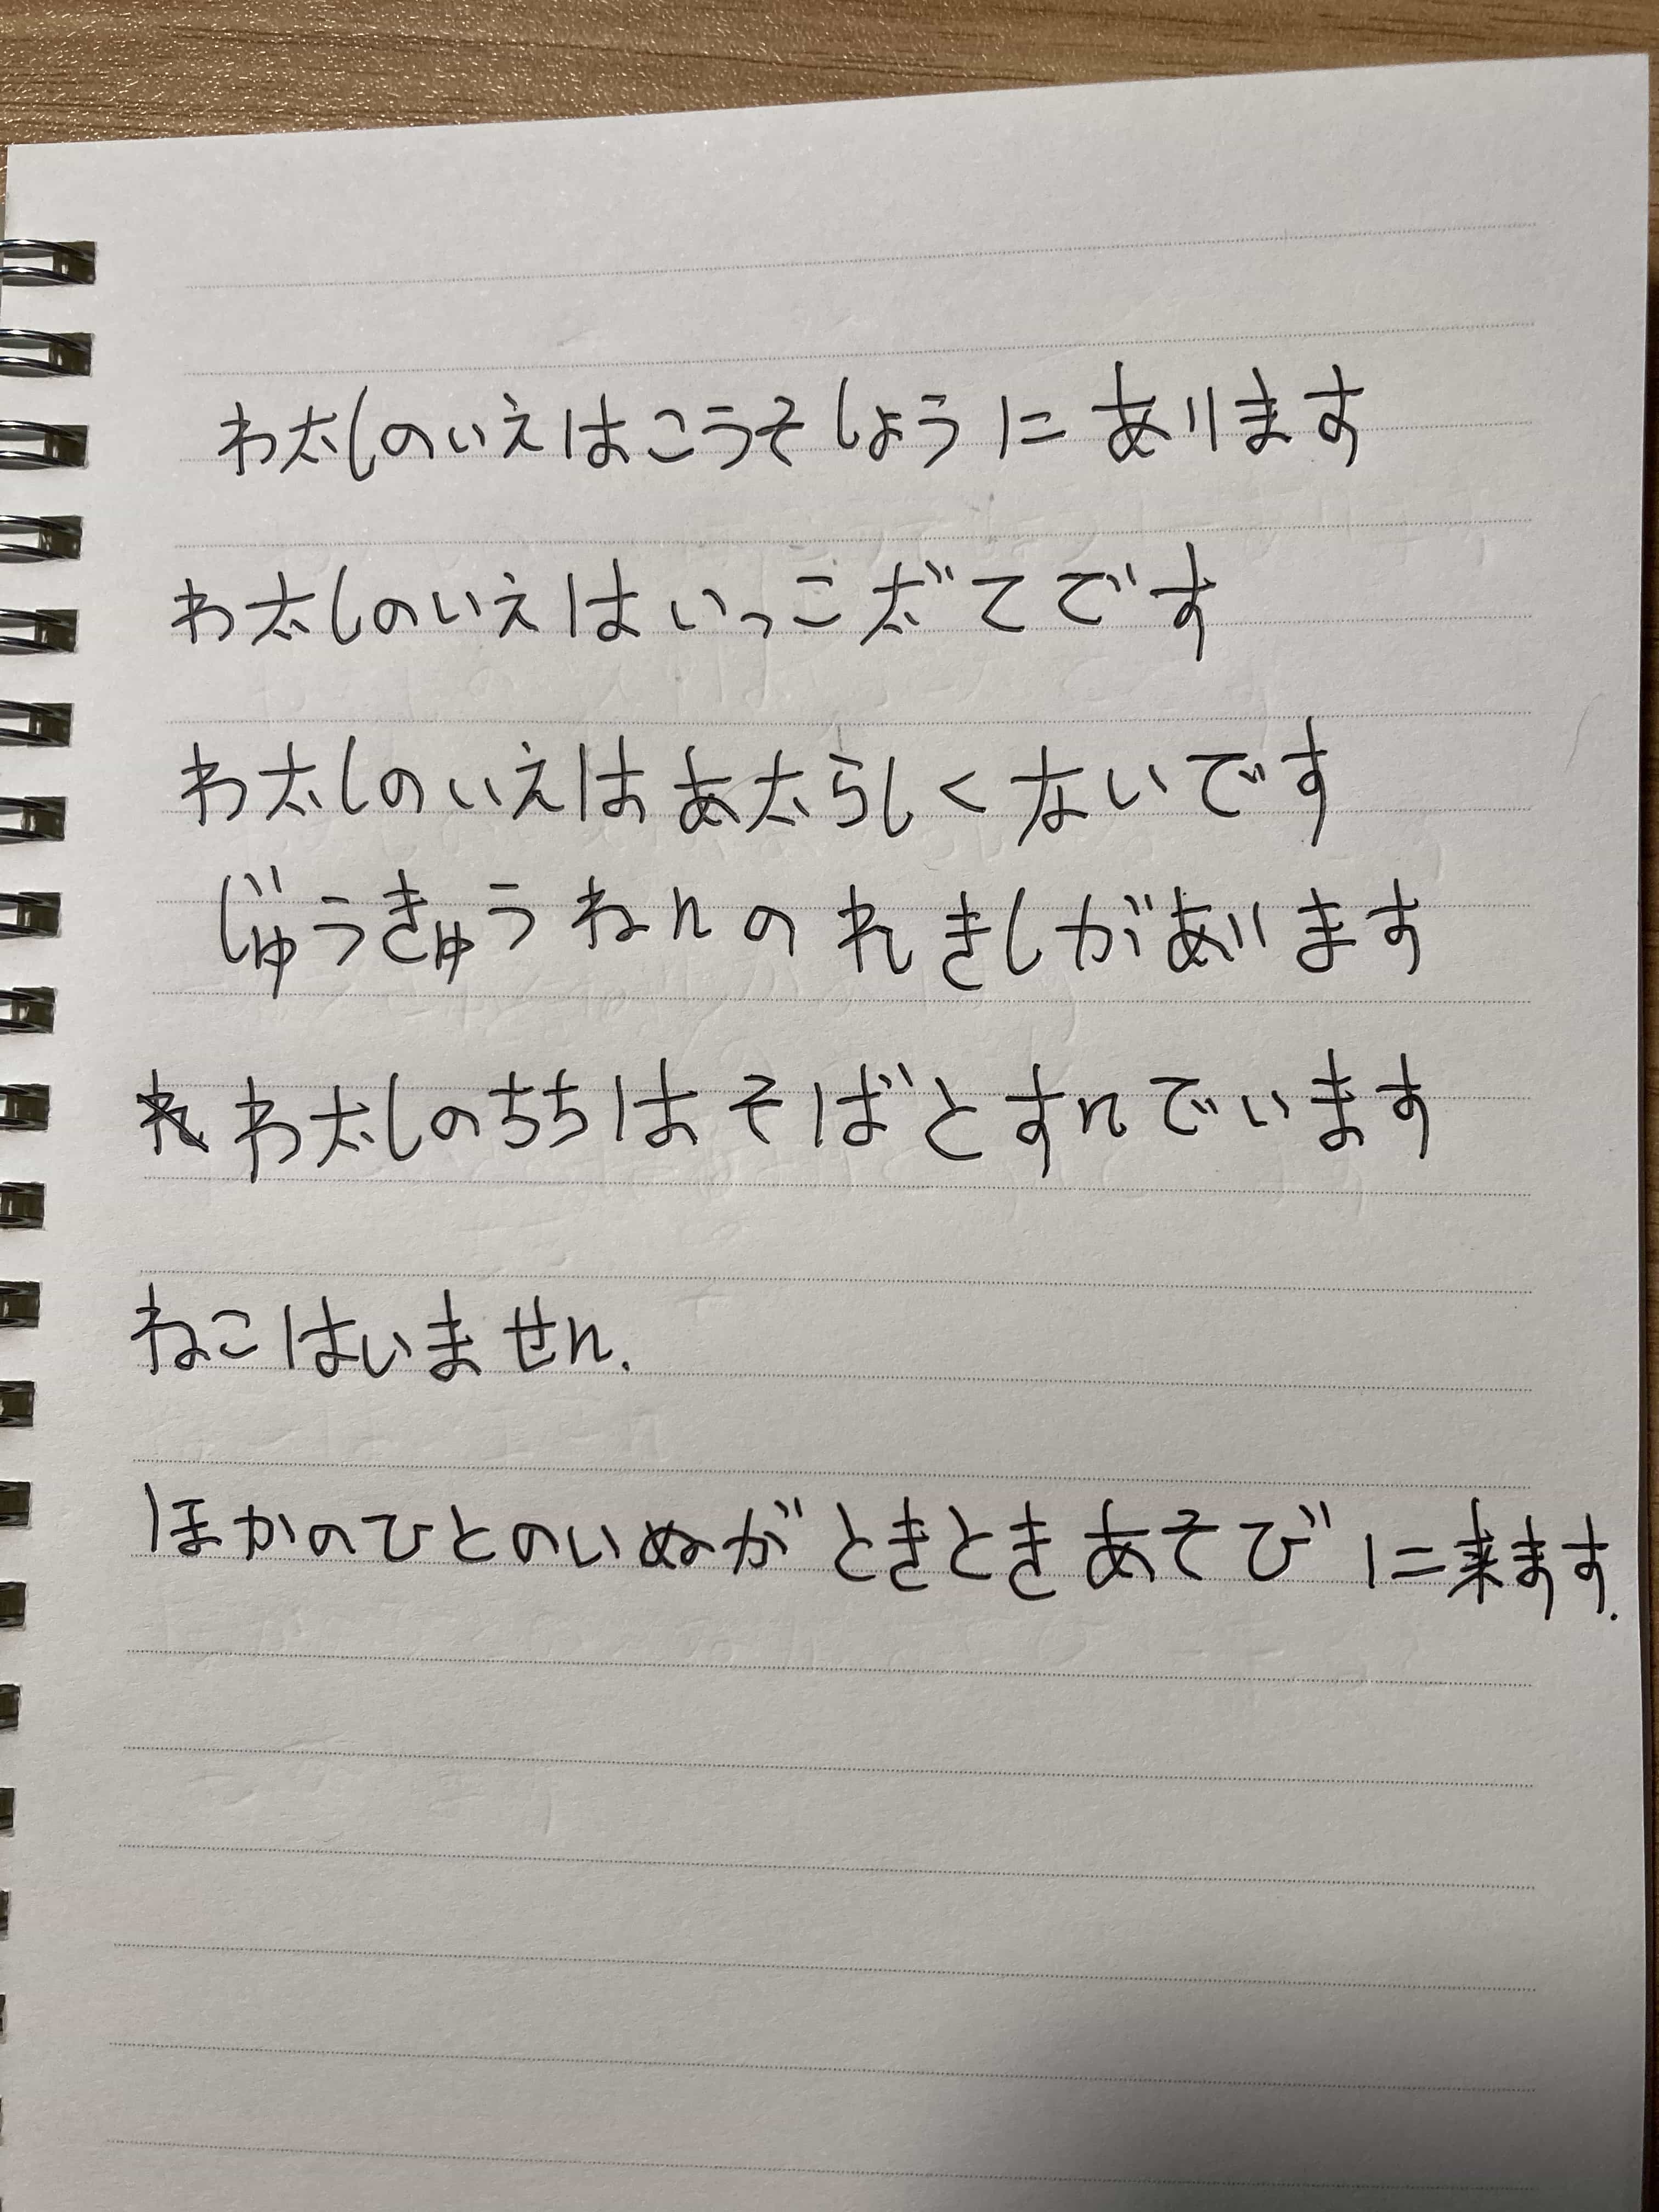 わたしのいえはこうそしょうにあります
わたしのいえはいっこだてです
わたしのいえはあたらしくないです
じゅうきゅうねんのれきしがあります
わたしのちちはそばとすんでいます
ねこはいません.
ほかのひとのいぬがときときあそびに来ます.